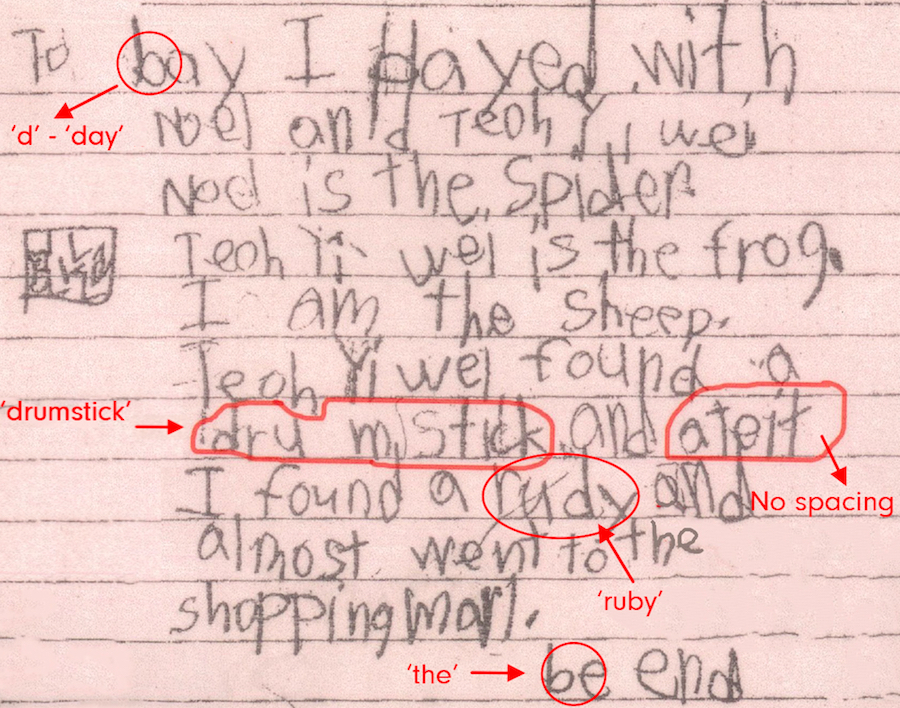 To bay I played with
'd' - 'day'
Noel and Teoh Yi wei
Noel is the Spider
Teoh Yi wei is the frog.
I am the sheep.
Teoh Yi wei found a
'drumstick'
dru m stick and ateit
No spacing
I found a rudy and
almost went to the
'ruby'
shopping marl.
'the'
be end